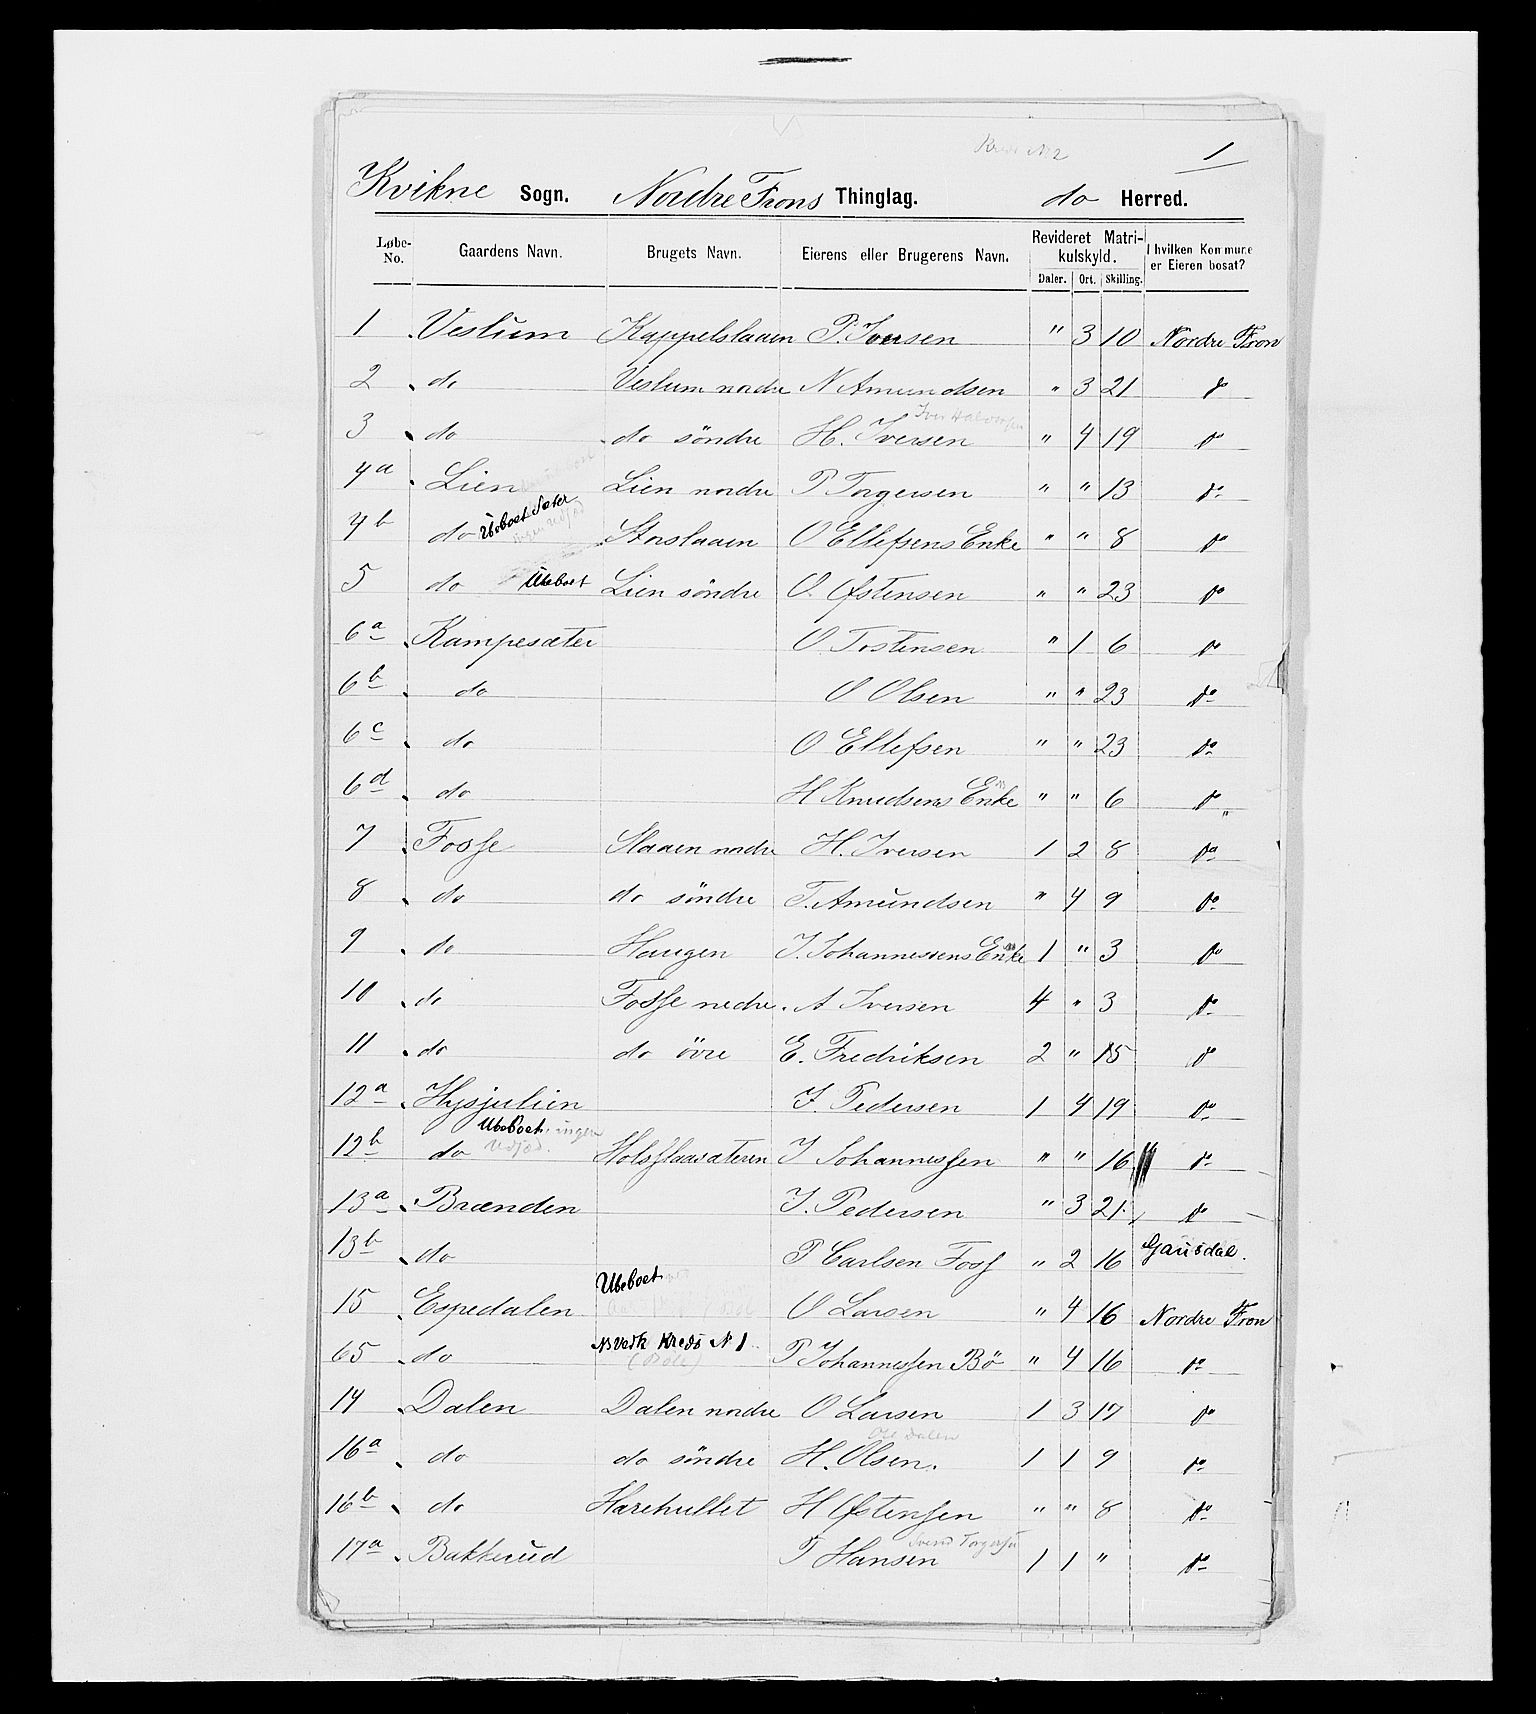 Kreds N 2
1
Kvikne Sogn. Nordre Frons Thinglag. do Herred.
Løbe-No. Gaardens Navn. Brugets Navn. Eierens eller Brugerens Navn. Revideret Matrikulskyld. I hvilken Kommune er Eieren bosat?
Daler. Ort. Skilling.
1 Veslum Kappelslaaen P. Iversen " 3 10 Nordre Fron
2 do Veslum nordre N Amundsen " 3 21 do
Iver Halvorsen
3 do do söndre H. Iversen " 4 19 do
4a Lien Lien nordre P Torgersen " " 13 do
Ubeboet Sæter
4b do Storslaaen O Ellefsens Enke " " 8 do
5 do Ubeboet Lien söndre O. Østensen " " 23 do
6a Kampesæter O. Tostensen " 1 6 do
6b do O Olsen " " 23 do
6c do O Ellefsen " " 23 do
6d do H Knudsens Enke " " 6 do
7 Fosse Slaaen nordre H. Iversen 1 2 8 do
8 do do söndre T. Amundsen " 4 9 do
9 do Haugen J. Johannesens Enke 1 " 3 do
10 do Fosse nedre A Iversen 4 " 3 do
11 do do övre E. Fredriksen 2 " 15 do
12a Hysjulien J. Pedersen 1 4 19 do
Ubeboet. ingen
Vedjöd.
12b do Holsflaasæteren J Johannessen " " 16 do
13a Brænden J. Pedersen " 3 21 do
13b do P Carlsen Foss " 2 16 Gausdal.
Ubeboet
15 Espedalen O Larsen " 4 16 Nordre Fron
NVerk Kreds N 1
65 do P Johannessen Bö " 4 16 do
14 Dalen Dalen nordre O Larsen 1 3 17 do
Ole Dalen
16a do do söndre H. Olsen. 1 1 9 do
16b do Harehullet H Østensen " " 8 do
Svend Torgersen
17a Bakkerud T Hansen 1 1 " do